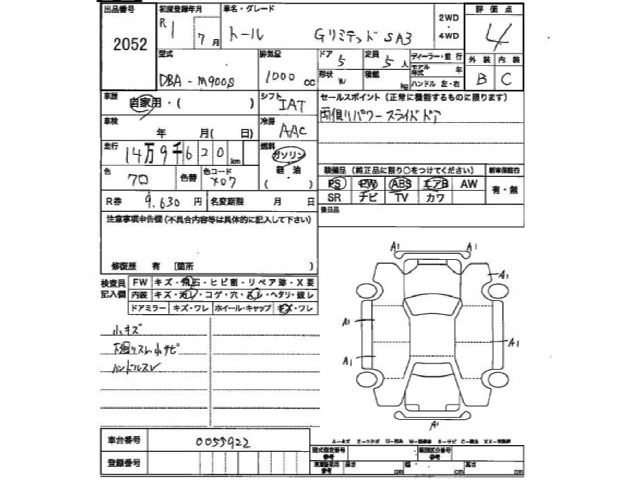 出品番号 2052
初度登録年月 R1年7月
車名・グレード トール Gリミテッド SA3
2WD・4WD
評価点 4
型式 DBA-M900S
排気量 1000 cc
ドア 5 定員 5人
形状 W 積載 kg
ディーラー・並行
モデル年式 年
ハンドル 左・右
外装 内装
B C
車歴 自家用・( )
シフト IAT
セールスポイント (正常に機能するものに限ります)
両側パワースライドドア
車検 年 月(日)
冷房 AAC
走行 14万9千620km
燃料 ガソリン 軽油 ( )
色 クロ 色替 色コード X07
装備品 (純正品に限り○をつけてください)
PS PW ABS エアB AW
SR ナビ TV カワ
新車保証書
有・無
R券 9,630円 名変期限 月 日
後日品
注意事項申告欄 (不具合内容等は具体的に記入して下さい)
修復歴 有 [箇所 ]
検査員記入欄
FW キズ・飛石・ヒビ割・リペア跡・X要
内装 キズ・ヨゴレ・コゲ・穴・スレ・ヘタリ・破レ
ドアミラー キズ・ワレ ホイール・キャップ キズ・ワレ
小キズ
下廻りスレ小サビ
ハンドルスレ
A1 A1
A1
A1 A1
A1
A1
A1
車台番号 0055922
登録番号
型式指定番号 参考
類別区分番号 参考
長さ cm 幅 cm 高さ cm